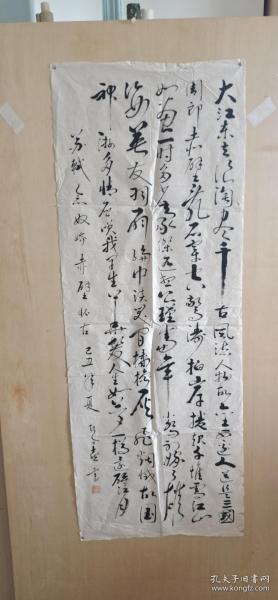 大江东去浪淘尽千古风流人物故垒西边人道是三国
周郎赤壁乱石穿空惊涛拍岸捲起千堆雪江山
如画一时多少豪杰遥想公瑾当年小乔初嫁了雄
姿英发羽扇纶巾谈笑间樯橹灰飞烟灭故国
神游多情应笑我早生华发人生如梦一樽还酹江月
苏轼念奴娇赤壁怀古 己丑年夏
孔夫子旧书网